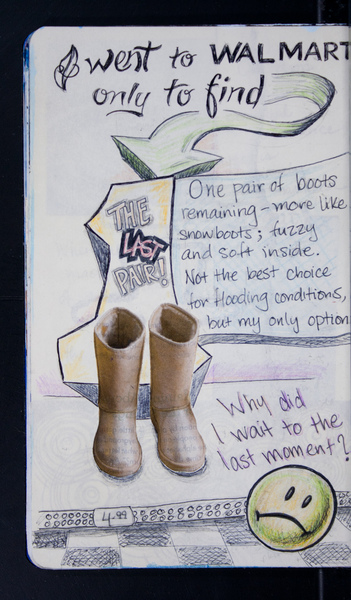 I went to WALMART
only to find
THE
LAST
PAIR!
One pair of boots
remaining - more like
snowboots; fuzzy
and soft inside.
Not the best choice
for flooding conditions,
but my only option
Why did
I wait to the
last moment?
4.99